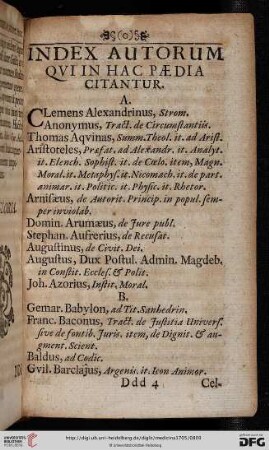 (o)
INDEX AUTORUM
QVI IN HAC PÆDIA
CITANTUR.
A.
CLemens Alexandrinus, Strom.
Anonymus, Tract. de Circumstantiis.
Thomas Aqvinas, Summ. Theol. it. ad Arist.
Aristoteles, Præfat. ad Alexandr. it. Analyt.
it. Elench. Sophist. it. de Cœlo. item, Magn.
Moral. it. Metaphys. it. Nicomach. it. de part.
animar. it. Politic. it. Physic. it. Rhetor.
Arnisæus, de Autorit. Princip. in popul. sem-
per inviolab.
Domin. Arumæus, de Jure publ.
Stephan. Aufrerius, de Recusat.
Augustinus, de Civit. Dei.
Augustus, Dux Postul. Admin. Magdeb.
in Constit. Eccles. & Polit.
Joh. Azorius, Instit. Moral.
B.
Gemar. Babylon, ad Tit. Sanhedrin.
Franc. Baconus, Tract. de Justitia Univers.
sive de fontib. Juris. item, de Dignit. & au-
gment. Scient.
Baldus, ad Codic.
Gvil. Barclajus, Argenis. it. Icon Animor.
Ddd 4 Cel-
http://digi.ub.uni-heidelberg.de/diglit/medicina1705/0803
© Universitätsbibliothek Heidelberg